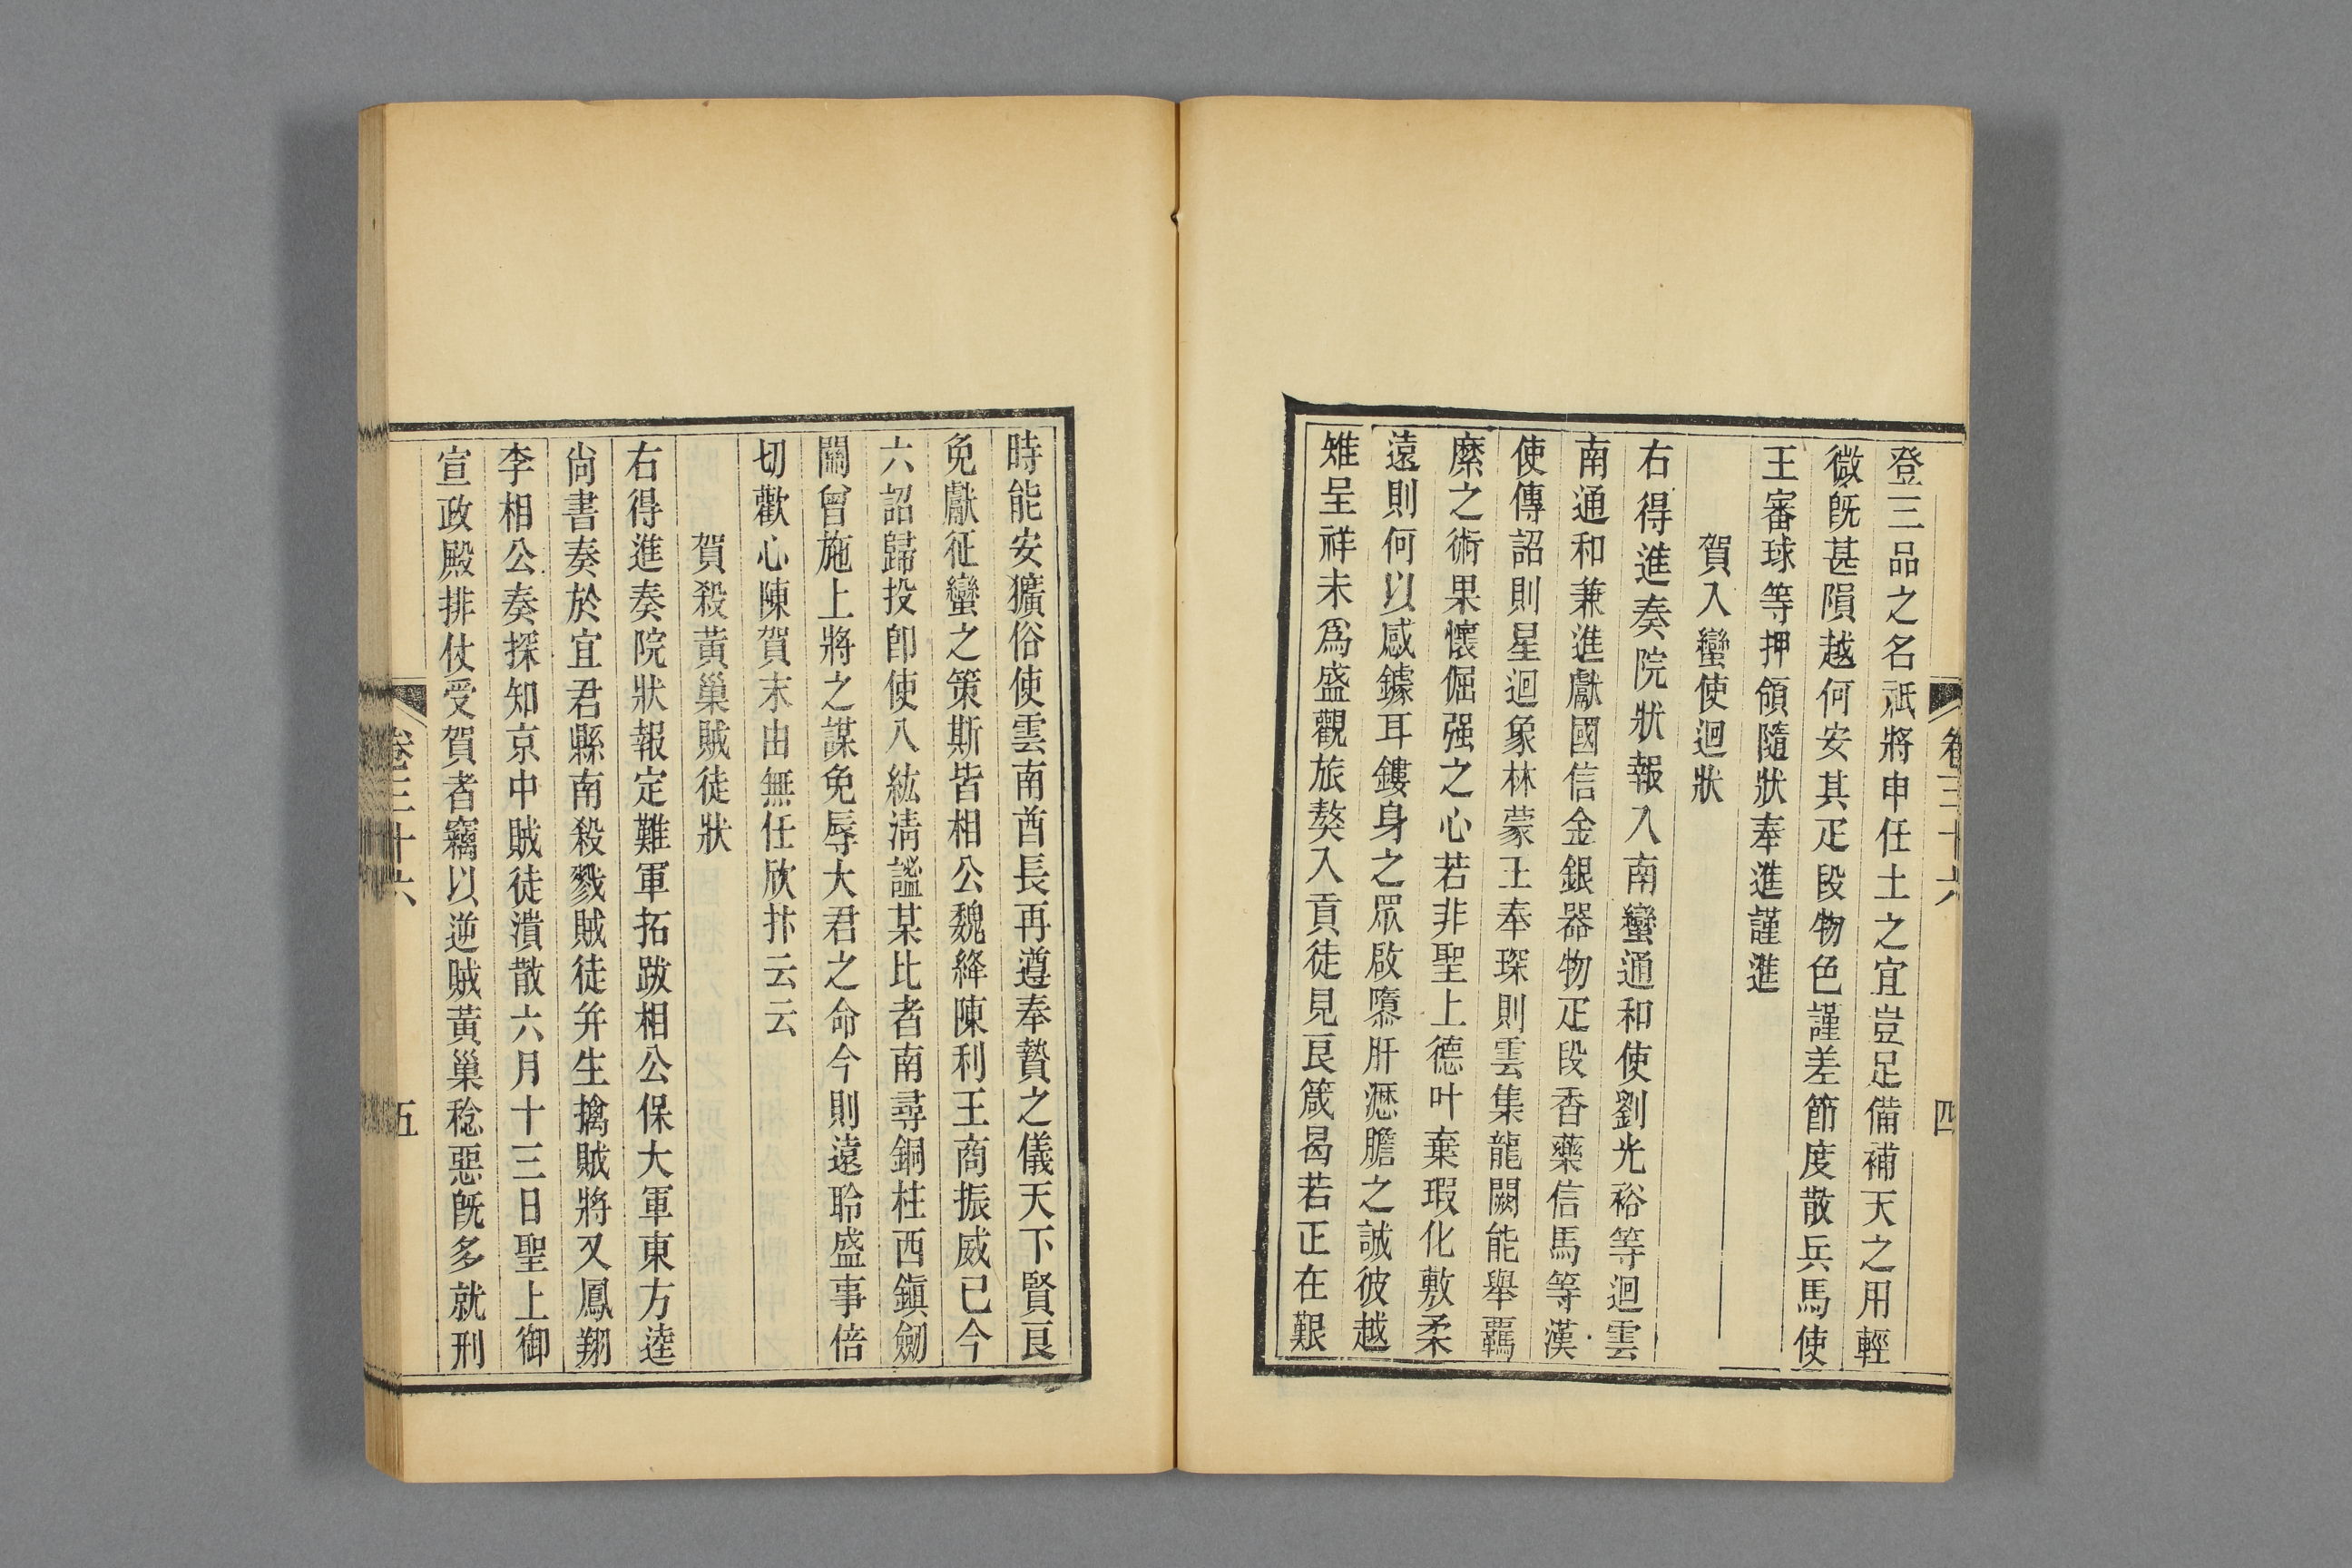 登三品之名祗將申任土之宜豈足備補天之用輕
微旣甚隕越何安其疋段物色謹差節度散兵馬使
王審球等押領隨狀奉進謹進
賀入蠻使迴狀
右得進奏院狀報入南蠻通和使劉光裕等迴雲
南通和兼進獻國信金銀器物疋段香藥信馬等漢
使傳詔則星迴象林蒙王奉琛則雲集龍闕能舉羈
縻之術果懷倔强之心若非聖上德叶棄瑕化敷柔
遠則何以感鐻耳鏤身之眾啟隳肝瀝膽之誠彼越
雉呈祥未爲盛觀旅獒入貢徒見良箴曷若正在艱
卷三十六
四
時能安獷俗使雲南酋長再遵奉贄之儀天下賢良
免獻征蠻之策斯皆相公魏絳陳利王商振威已今
六詔歸投卽使八紘淸謐某比者南尋銅柱西鎭劒
關曾施上將之謀免辱大君之命今則遠聆盛事倍
切歡心陳賀末由無任欣抃云云
賀殺黃巢賊徒狀
右得進奏院狀報定難軍拓跋相公保大軍東方逵
尙書奏於宜君縣南殺戮賊徒幷生擒賊將又鳳翔
李相公奏探知京中賊徒潰散六月十三日聖上御
宣政殿排仗受賀者竊以逆賊黃巢稔惡旣多就刑
卷三十六
五